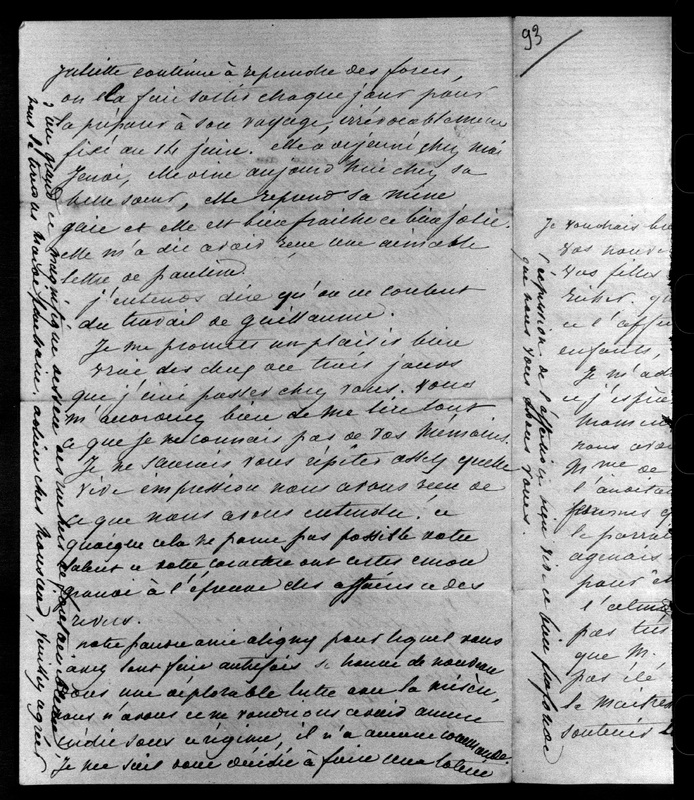 93
juliette continue à reprendre des forces,
on la fait sortir chaque jour pour
la préparer à son voyage, irrévocablement
fixé au 14 juin. Elle a déjeuné chez moi
jeudi, elle dine aujourd'hui chez sa
belle sœur, elle reprend sa mine
gaie et elle est bien fraiche et bien jolie.
elle m'a dit avoir reçu une aimable
lettre de pauline.
j'entends dire qu'on est content
du travail de guillaume.
Je me promets un plaisir bien
vrai des deux ou trois jours
que j'irai passer chez vous. vous
m'accorderez bien de me lire tout
ce que je ne connais pas de vos Memoires.
Je ne saurais vous répéter assez quelle
vive impression nous avons reçu de
ce que nous avons entendu. et
quoique cela ne pouvait pas possible votre
talent et votre caractère ont cette
à l'épreuve des affaires et des
revers.
notre pauvre ami aligny pour lequel vous
avez tant fait autrefois se trouve de nouveau
dans une déplorable lutte avec la misère,
nous n'avons et ne voudrions avoir aucun
crédit sous ce régime, il n'a aucune commande.
Je me suis donc décidée à faire une loterie
d'un grand et magnifique dessin des environs de fontainebleau
adieu cher Monsieur, veuillez agréer
l'expression de l'affection bien vive et bien profonde
que nous vous avons vouée.
Je voudrais bie
vos nouv
vos filles
et l'affec
enfants,
Je m'ad
et j'espère
momen
nous avo
Mme de
l'avoisin
pour
l'calme
pas tr
que M.
pas été
le maître
soutenir